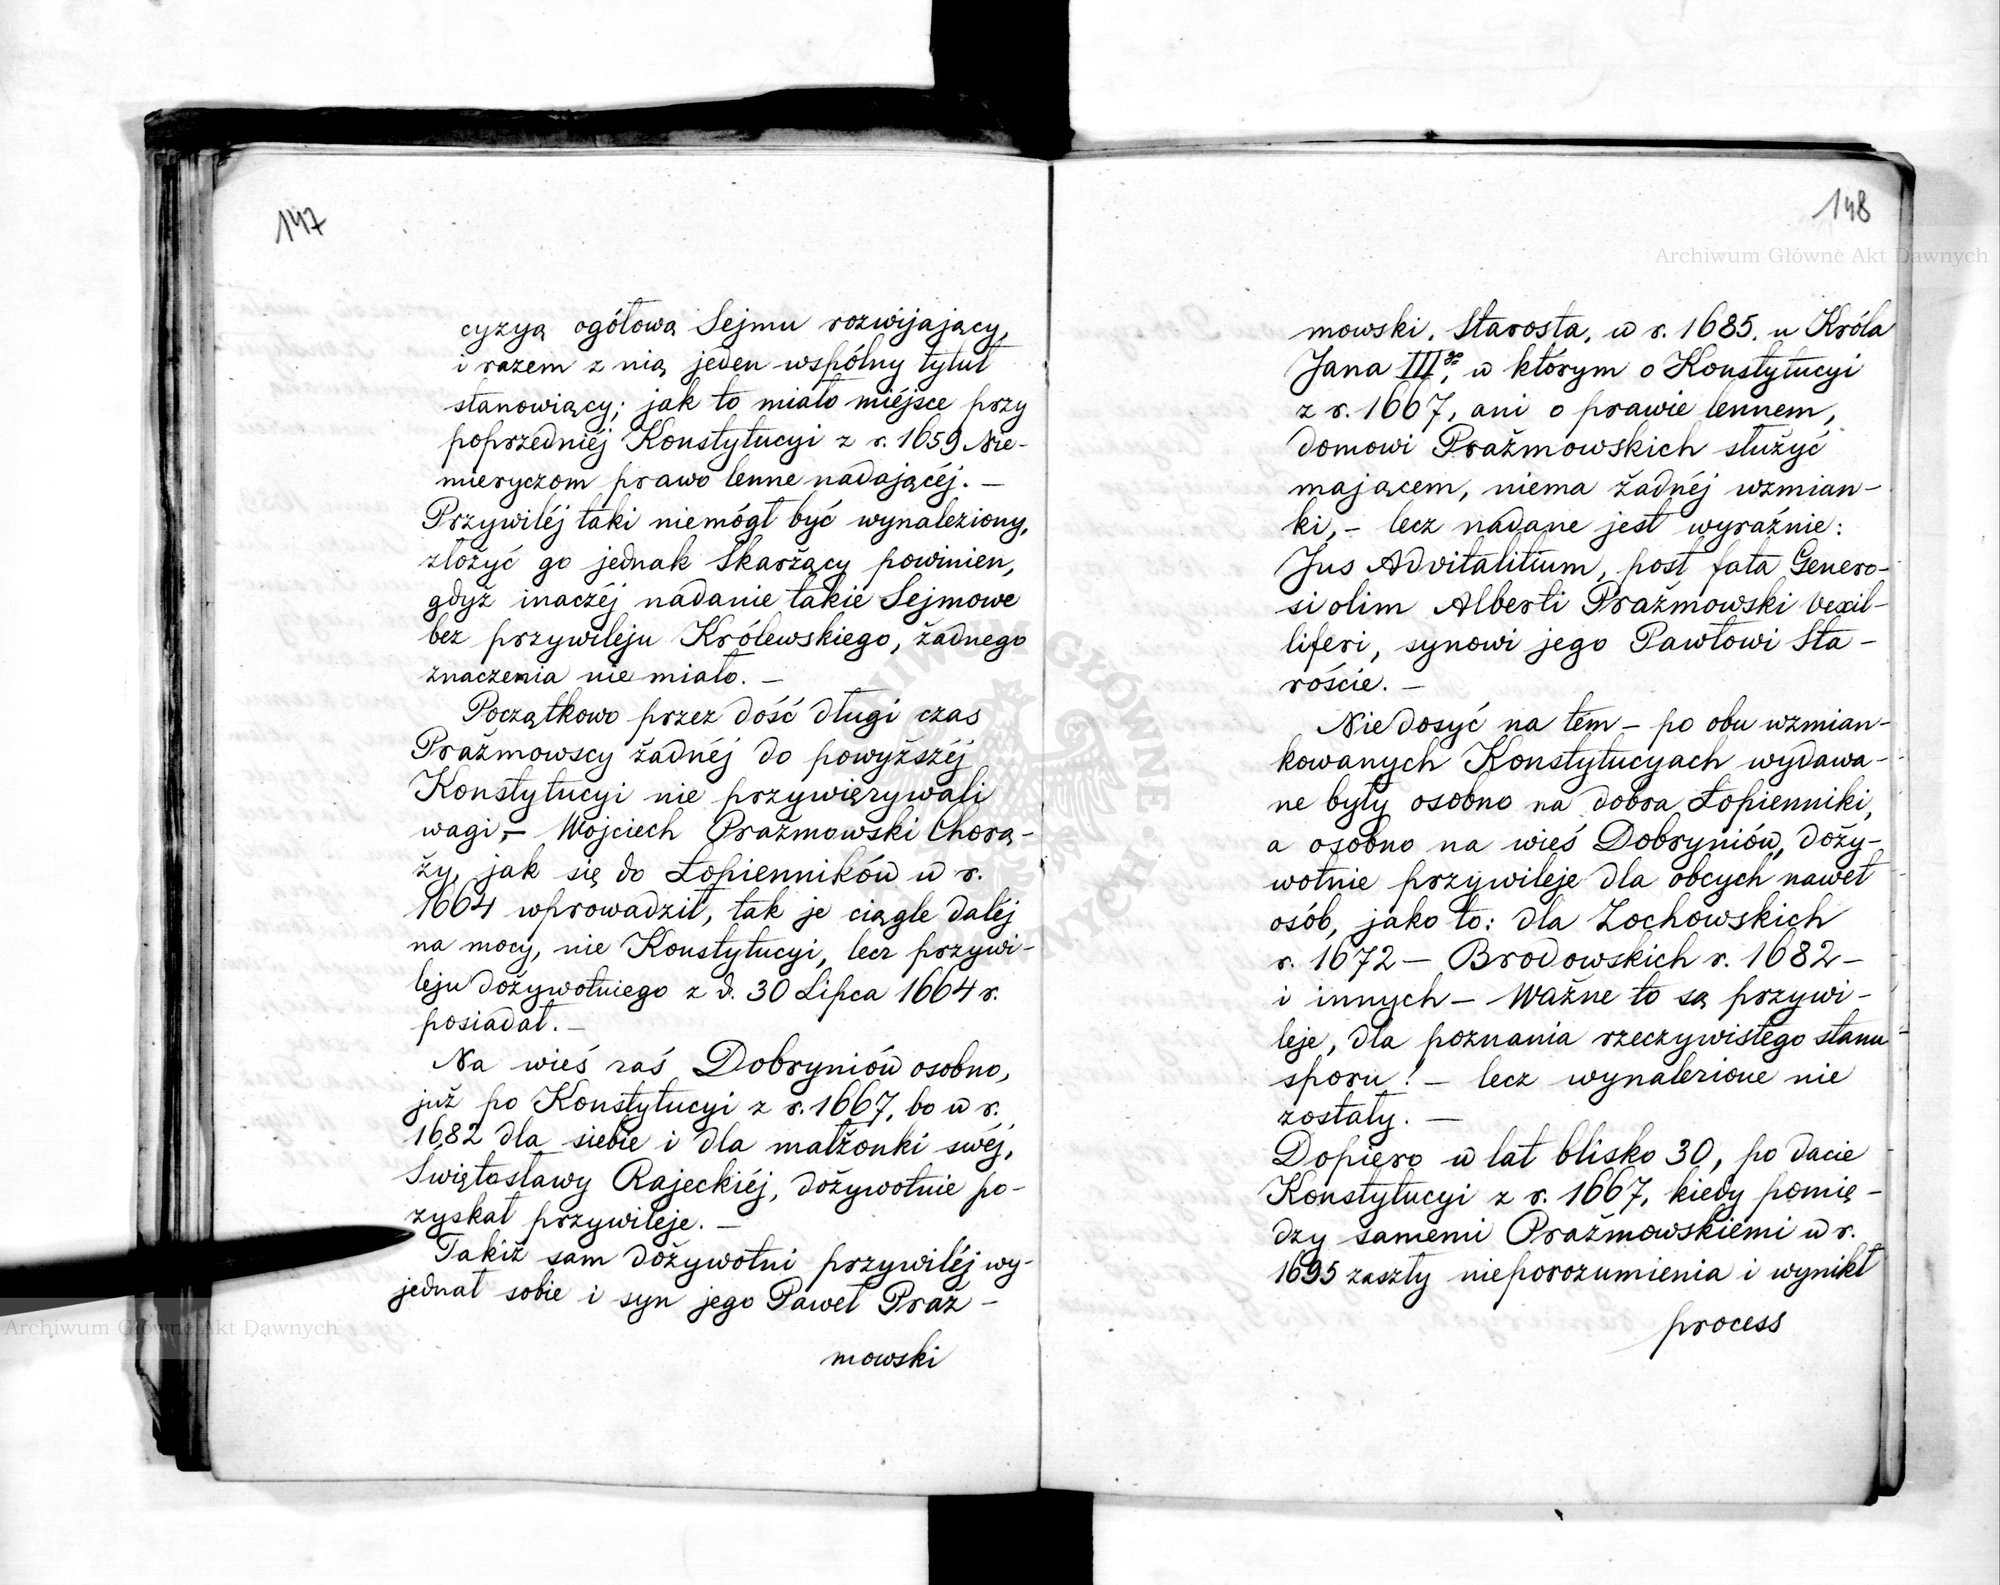 147
cyzyą ogółową Sejmu rozwijający,
i razem z nią jeden wspólny tytuł
stanowiący; jak to miało miéjsce przy
poprzedniéj Konstytucyi z r. 1659 Nie-
mieryczom prawo lenne nadającéj. —
Przywiléj taki niemógł być wynaleziony,
złożyć go jednak Skarżący powinien,
gdyż inaczéj nadanie takie Sejmowe
bez przywileju Królewskiego, żadnego
znaczenia nie miało. —
Początkowo przez dość długi czas
Prażmowscy żadnéj do powyższéj
Konstytucyi nie przywięzywali
wagi, — Wojciech Prażmowski Chorą-
ży, jak się do Łopienników w r.
1664 wprowadził, tak je ciągle daléj
na mocy, nie Konstytucyi, lecz przywi-
leju dożywotniego z d. 30 Lipca 1664 r.
posiadał. —
Na wieś zaś Dobryniów osobno,
już po Konstytucyi z r. 1667, bo w r.
1682 dla siebie i dla małżonki swéj,
Świętosławy Rajeckiéj, dożywotnie po-
zyskał przywileje. —
Takiż sam dożywotni przywiléj wy-
jednał sobie i syn jego Paweł Praż-
mowski
148
mowski, Starosta, w r. 1685. u Króla
Jana III go, w którym o Konstytucyi
z r. 1667, ani o prawie lennem,
domowi Prażmowskich służyć
mającem, niema żadnéj wzmian-
ki, — lecz nadane jest wyraźnie:
Jus Advitalitium, post fata Genero-
si olim Alberti Prażmowski Vexil-
liferi, synowi jego Pawłowi Sta-
roście. —
Niedosyć na tém — po obu wzmian-
kowanych Konstytucyach wydawa-
ne były osobno na dobra Łopienniki,
a osobno na wieś Dobryniów, doży-
wotnie przywileje dla obcych nawet
osób, jako to: dla Żochowskich
r. 1672 — Brodowskich r. 1682 —
i innych — Ważne to są przywi-
leje, dla poznania rzeczywistego stanu
sporu! — lecz wynalezione nie
zostały. —
Dopiero w lat blisko 30, po dacie
Konstytucyi z r. 1667, kiedy pomię-
dzy samemi Prażmowskiemi w r.
1695 zaszły nieporozumienia i wynikł
process
Archiwum Główne Akt Dawnych
Archiwum Główne Akt Dawnych